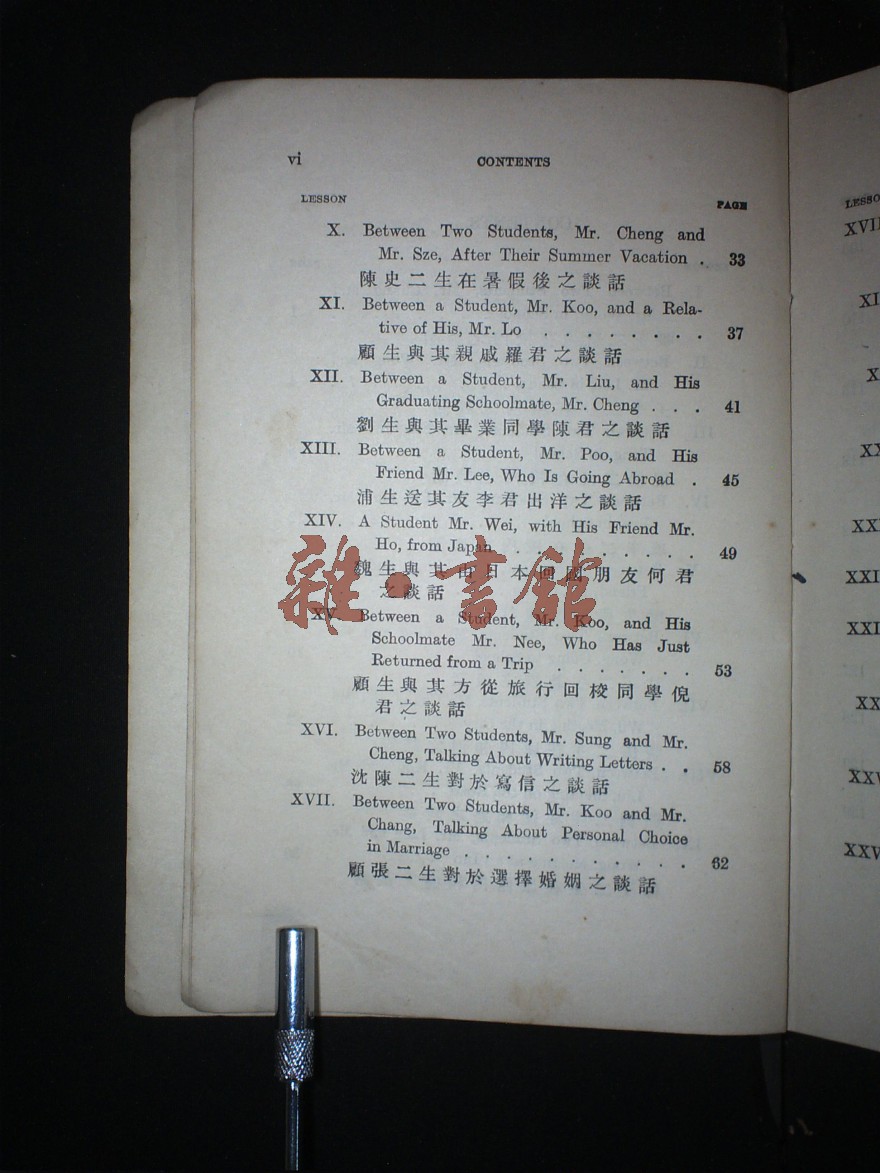 vi CONTENTS
LESSON PAGE
X. Between Two Students, Mr. Cheng and
Mr. Sze, After Their Summer Vacation . 33
陳史二生在暑假後之談話
XI. Between a Student, Mr. Koo, and a Rela-
tive of His, Mr. Lo . . . . . . . . 37
顧生與其親戚羅君之談話
XII. Between a Student, Mr. Liu, and His
Graduating Schoolmate, Mr. Cheng . . . 41
劉生與其畢業同學陳君之談話
XIII. Between a Student, Mr. Poo, and His
Friend Mr. Lee, Who Is Going Abroad . 45
浦生送其友李君出洋之談話
XIV. A Student Mr. Wei, with His Friend Mr.
Ho, from Japan . . . . . . . . . . 49
魏生與其由日本回國朋友何君
之談話
雜·書館
XV. Between a Student, Mr. Koo, and His
Schoolmate Mr. Nee, Who Has Just
Returned from a Trip . . . . . . . 53
顧生與其方從旅行回校同學倪
君之談話
XVI. Between Two Students, Mr. Sung and Mr.
Cheng, Talking About Writing Letters . . 58
沈陳二生對於寫信之談話
XVII. Between Two Students, Mr. Koo and Mr.
Chang, Talking About Personal Choice
in Marriage . . . . . . . . . . . 62
顧張二生對於選擇婚姻之談話
LESSO
XVII